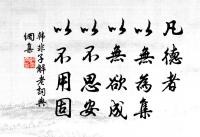 凡德者
以無為集
以無欲成
以不思安
以不用固
韓非子解老詞典
網集